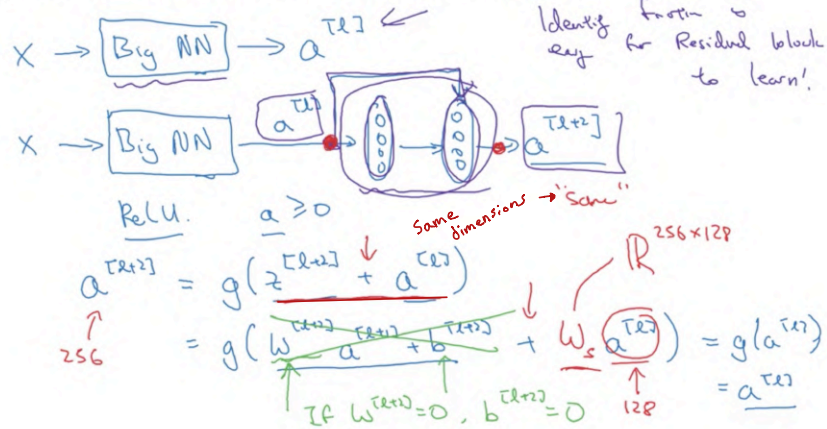 X → Big NN → a^[l]
Identity function is
easy for Residual block
to learn!
X → Big NN → a^[l] → → a^[l+2]
ReLU. a ≥ 0
Same dimensions → "same"
ℝ^256×128
a^[l+2] = g(z^[l+2] + a^[l])
= g(W^[l+2] a^[l+1] + b^[l+2] + W_s a^[l]) = g(a^[l])
256
= a^[l]
If W^[l+2] = 0, b^[l+2] = 0
128